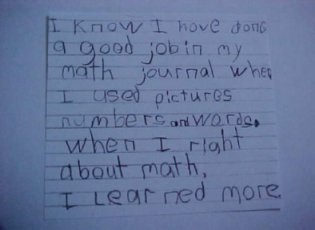 I know I have done
a good job in my
math journal when
I used pictures
numbers and words.
when I right
about math.
I Learned more